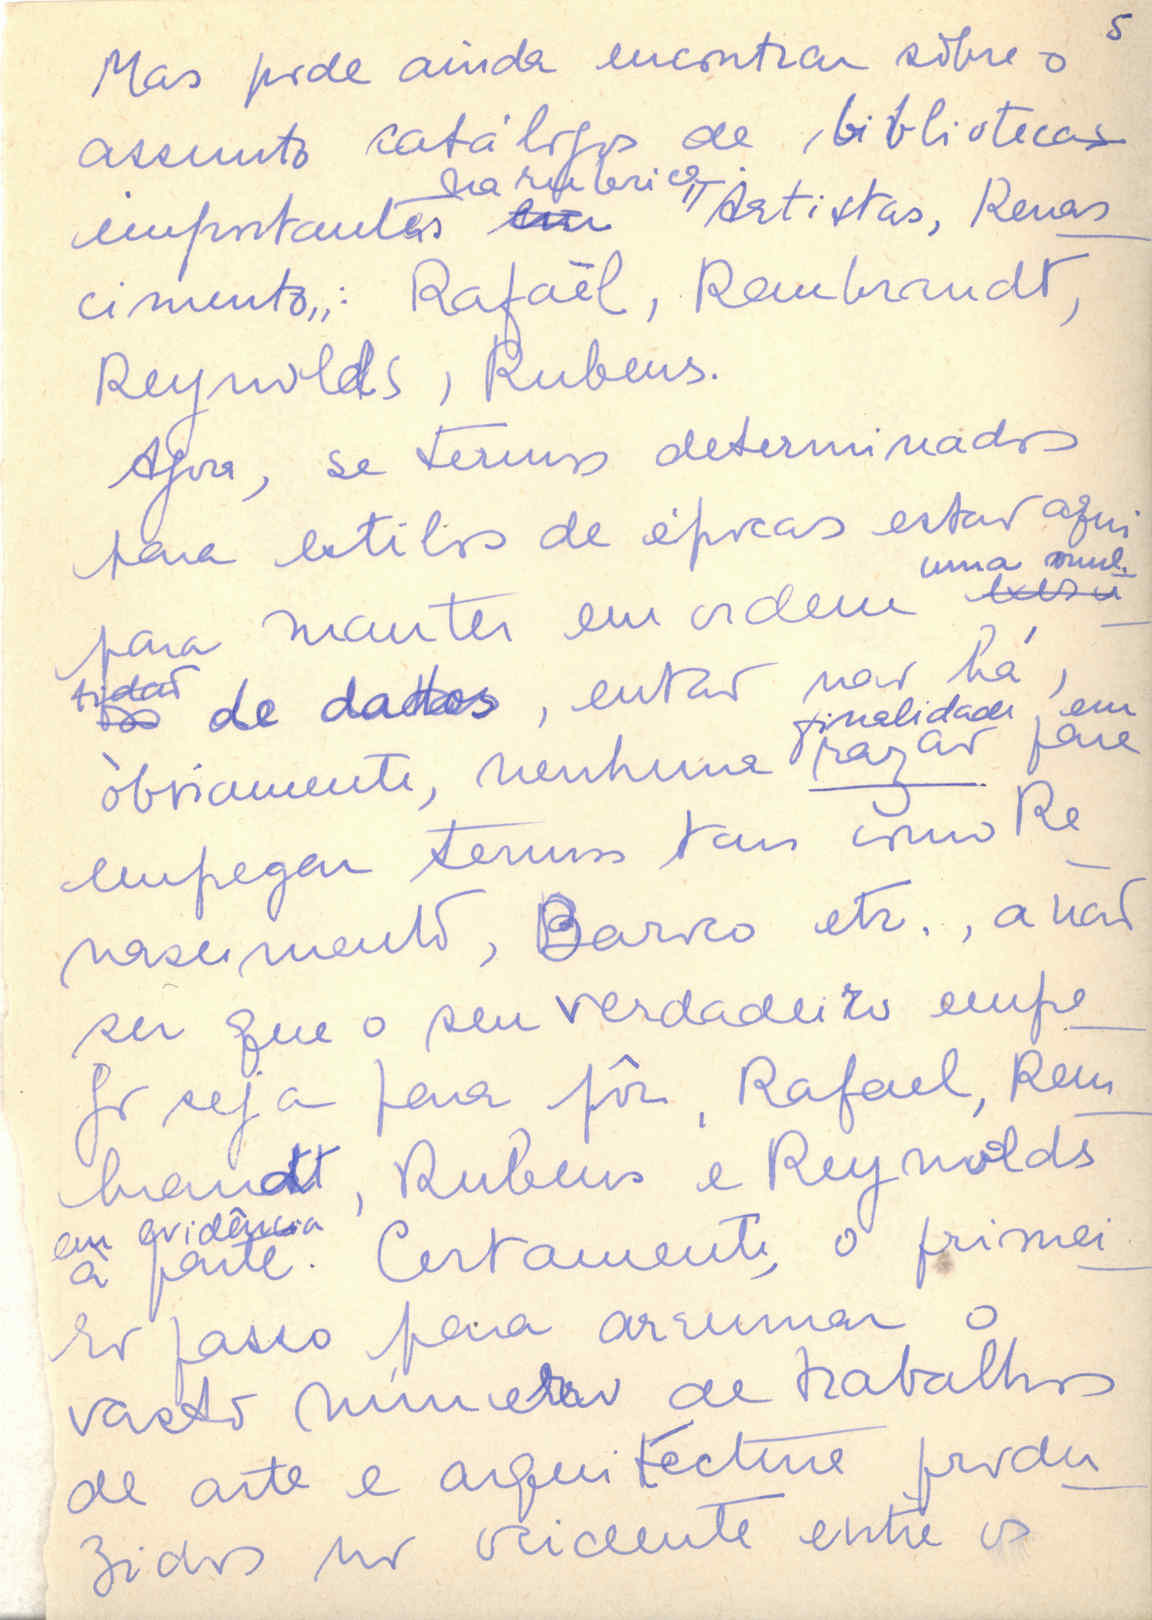 5
Mas pode ainda encontrar sôbre o
assunto catálogos de bibliotecas
na rubrica
importantes em "Artistas, Renas
cimento„: Rafaël, Rembrandt,
Reynolds, Rubens.
Agora, se termos determinados
para estilos de épocas estão aqui
uma mul-
para manter em ordem
tidão
de dados, então não há,
finalidade, em
òbviamente, nenhuma razão para
empegar termos tais como Re
nascimento, Barroco etc., a não
ser que o seu verdadeiro empe
go seja para pôr, Rafael, Rem
brandt, Rubens e Reynolds
em evidência
à parte. Certamente, o primei
ro passo para arrumar o
vasto número de trabalhos
de arte e arquitectura produ
zidos no ocidente entre os